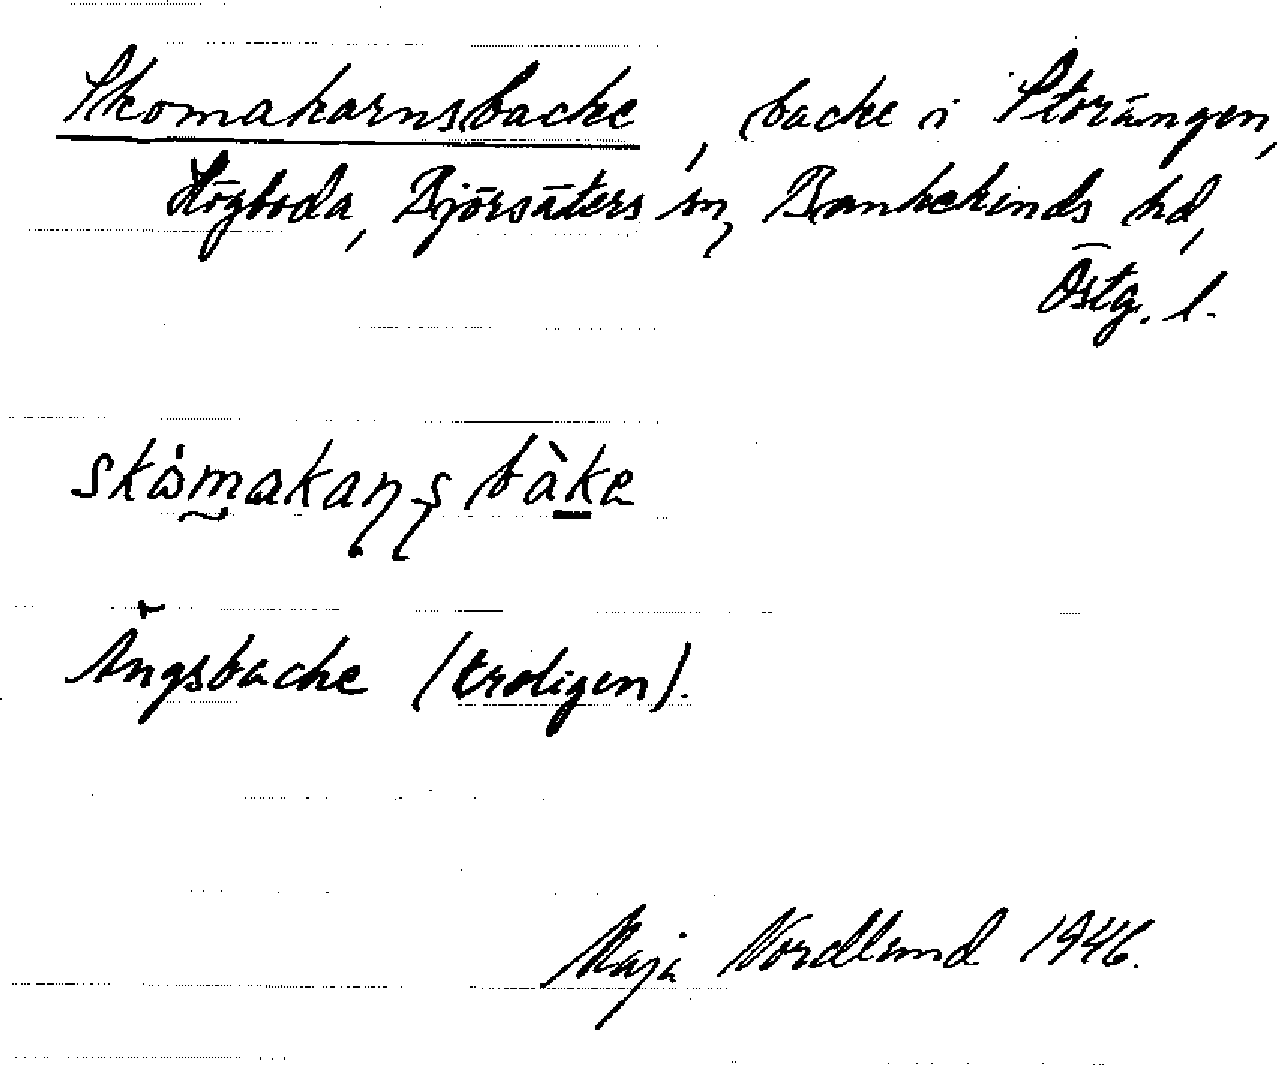 Skomakarnsbacke, backe i Storängen,
Högboda, Björsäters sn, Bankekinds hd,
Östg. l.
skɷ̀makaɳʂbàkɐ
Ängsbacke (troligen).
Maja Nordlund 1946.